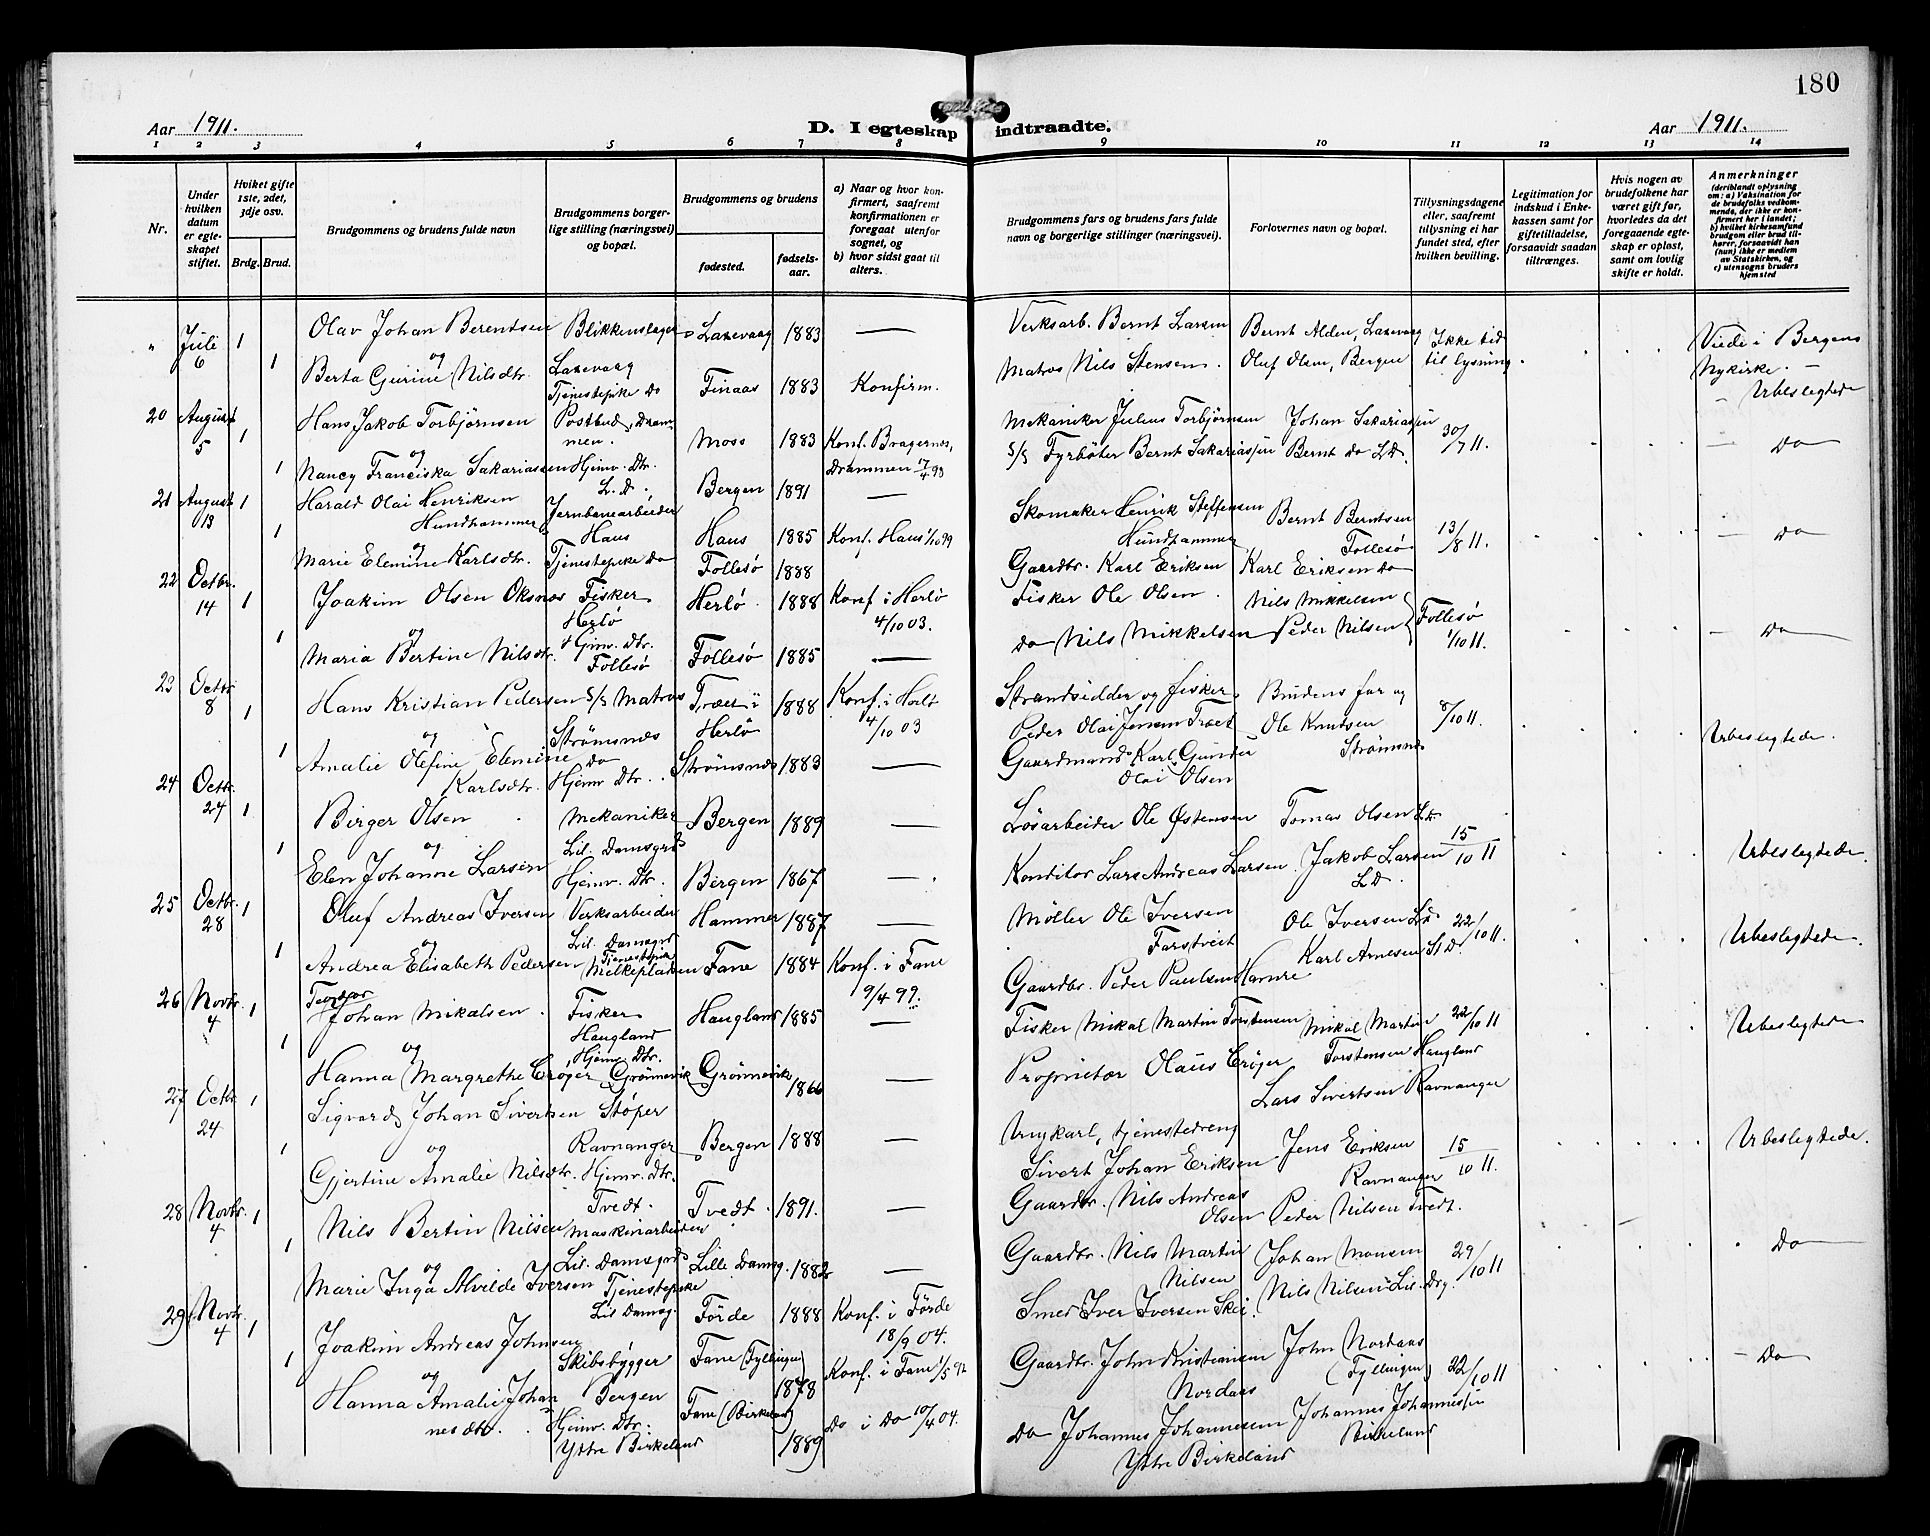 180
Aar 1911.
D. I egteskap indtraadte.
Aar 1911.
1 2 3 4 5 6 7 8 9 10 11 12 13 14
Nr.
Under hvilken datum er egteskapet stiftet.
Hvilket gifte 1ste, 2det, 3dje osv.
Brdg. Brud.
Brudgommens og brudens fulde navn
Brudgommens borgerlige stilling (næringsvei) og bopæl.
Brudgommens og brudens
fødested.
fødselsaar.
a) Naar og hvor konfirmert, saafremt konfirmationen er foregaat utenfor sognet, og
b) hvor sidst gaat til alters.
Brudgommens fars og brudens fars fulde navn og borgerlige stillinger (næringsvei).
Forlovernes navn og bopæl.
Tillysningsdagene eller, saafremt tillysning ei har fundet sted, efter hvilken bevilling.
Legitimation for indskud i Enkekassen samt for giftetilladelse, forsaavidt saadan tiltrænges.
Hvis nogen av brudefolkene har været gift før, hvorledes da det foregaaende egteskap er opløst, samt om lovlig skifte er holdt.
Anmerkninger (deriblandt oplysning om: a) Vaksination for de brudefolks vedkommende, der ikke er konfirmert her i landet; b) hvilket kirkesamfund brudgom eller brud tilhører, forsaavidt han (hun) ikke er medlem av Statskirken, og c) utensogns bruders hjemsted
" Juli 6 1 Olav Johan Berentsen Blikkenslager Laxevaag 1883 — Verksarb. Bernt Larsen Bernt Alden, Laxevaag Ikke tid til lysning Viede i Bergens Nykirke. — Ubeslegtede
og
1 Berta Gurine Nilsdtr. Laxevaag Tjenestepike Do Finaas 1883 Konfirm. Matros Nils Stensen. Oluf Olsen, Bergen
20 August 5 1 Hans Jakob Torbjörnsen Postbud, Drammen. Moss 1883 Konf. Bragernes, Drammen 17/4 98 Mekaniker Julius Torbjörnsen Johan Sakariassen 30/7 11. — Do
og
1 Nancy Franciska Sakariassen Hjemv. Dtr. L. D. Bergen 1891 — S/S Fyrböter Bernt Sakariassen Bernt do L D.
21 August 13 1 Harald Olai Henriksen Hundhammer Jernbanearbeider Haus Haus 1885 Konf. Haus 1/10 99 Skomaker Henrik Steffensen Hundhammer Bernt Berntsen Follesø 13/8 11. — Do
og
1 Marie Elemine Karlsdtr. Tjenestepike Do Follesø 1888 Gaardbr. Karl Eriksen Karl Eriksen Do
22 Octbr. 14 1 Joakim Olsen Oksnes Fisker Herlö Herlö. 1888 Konf. i Herlö 4/10 03. Fisker Ole Olsen. Nils Mikkelsen Follesø 1/10 11. — Do
og
1 Maria Bertine Nilsdtr. Hjmv. Dtr. Follesö Follesö 1885 — Do Nils Mikkelsen Peder Nilsen
23 Octbr 8 1 Hans Kristian Pedersen S/S Matros Strömsnes Træet i Herlö 1888 Konf. i Herlö 4/10 03 Strandsidder og fisker Peder Olai Jensen Træet Brudens far og Ole Knutsen Strömsnes 8/10 11. Ubeslegtede.
og
1 Amalie Olefine Elemine Karlsdtr. Do Hjemv. Dtr. Strömsnes 1883 — Gaardmand Karl Gunder Olai Olsen
24 Octbr. 24 1 Birger Olsen Mekaniker Lil. Damsgrd Bergen 1889 — Lösarbeider Ole Østensen Tomas Olsen L.D. 15/10 11 Ubeslegtede.
og
1 Elen Johanne Larsen Hjemv. Dtr. Bergen 1867 — Konditor Lars Andreas Larsen Jakob Larsen L D.
25 Octbr. 28 1 Oluf Andreas Iversen Verksarbeider Lil. Damsgrd Hammer 1887 — Möller Ole Iversen Farstveit Ole Iversen L.D. 22/10 11. Ubeslegtede.
og
1 Andrea Elisabeth Pedersen Tjenestepik Melkepladsen Fane 1884 Konf. i Fane 9/4 99. Gaardbr. Peder Paulsen Hamre Karl Arnesen St D.
26 Novbr. 4 1 Teodor Johan Mikalsen. Fisker Haugland Haugland 1885 — Fisker Mikal Martin Torstensen Mikal Martin Torstensen Haugland 22/10 11 Ubeslegtede
og
1 Hanna Margrethe Cröger Hjemv. Dtr. Grönnevik Grönnevik 1866 — Proprietær Olaus Cröger Lars Sivertsen Ravnanger
27 Octbr 24 1 Sigvard Johan Sivertsen Stöper Ravnanger Bergen 1888 — Ungkarl, tjenestedreng Sivert Johan Eriksen Jens Eriksen Ravnanger 15/10 11. Ubeslegtede.
og
1 Gjertine Amalie Nilsdtr. Hjemv. Dtr. Tvedt. Tvedt. 1891. — Gaardbr. Nils Andreas Olsen Peder Nilsen Tvedt.
28 Novbr. 4 1 Nils Bertin Nilsen Maskinarbeider Lil. Damsgrd Lille Damsg. 1882 — Gaardbr. Nils Martin Nilsen Johan Monsen 29/10 11 Do
og
1 Marie Inga Alvilde Iversen Tjenestepike Lil Damsg. Förde 1888 Konf. i Förde 18/9 04. Smed Iver Iversen Skei. Nils Nilsen Lil. Dsg.
29 Novbr. 4 1 Joakim Andreas Johnsen Skibsbygger Bergen Fane (Fyllingen) 1878 Konf. i Fane 1/5 92 Gaardbr. John Kristiansen Nordaas John Nordaas (Fyllingen) 22/10 11 — Do
og
1 Hanna Amalie Johannesdtr. Hjemv. Dtr. Ystre Birkeland Fane (Birkeland) 1889 Do i Do 10/4 04. Do Johannes Johannesen Ystre Birkeland Johannes Johannessen Birkeland